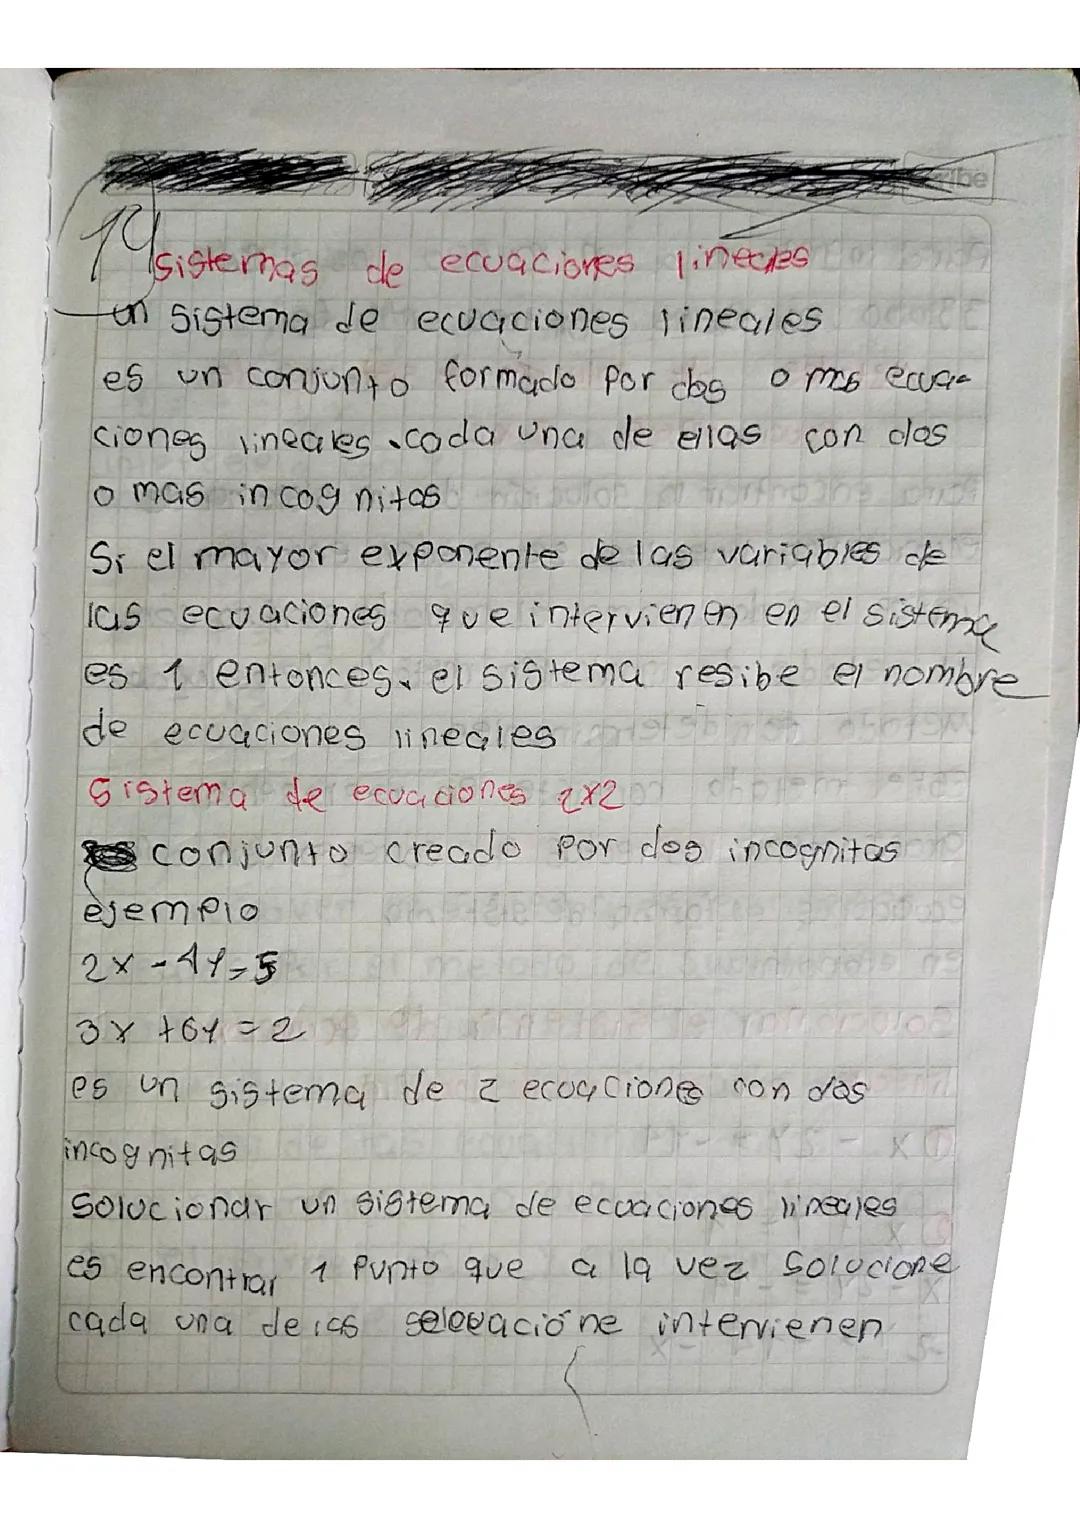 14
sistemas de ecuaciones lineales
un sistema de ecuaciones lineales
es un conjunto formado por dos o mas ecua-
ciones lineales. cada una de ellas con dos
o mas incognitas
Si el mayor exponente de las variables de
las ecuaciones que intervienen en el sistema
es 1 entonces, el sistema resibe el nombre
de ecuaciones lineales
Sistema de ecuaciones 2x2
conjunto creado por dos incognitas
ejemplo
2x - 4y = 5
3x + 6y = 2
es un sistema de 2 ecuaciones con dos
incognitas
Solucionar un sistema de ecuaciones lineales
es encontrar 1 punto que a la vez Solucione
cada una de las intervienen